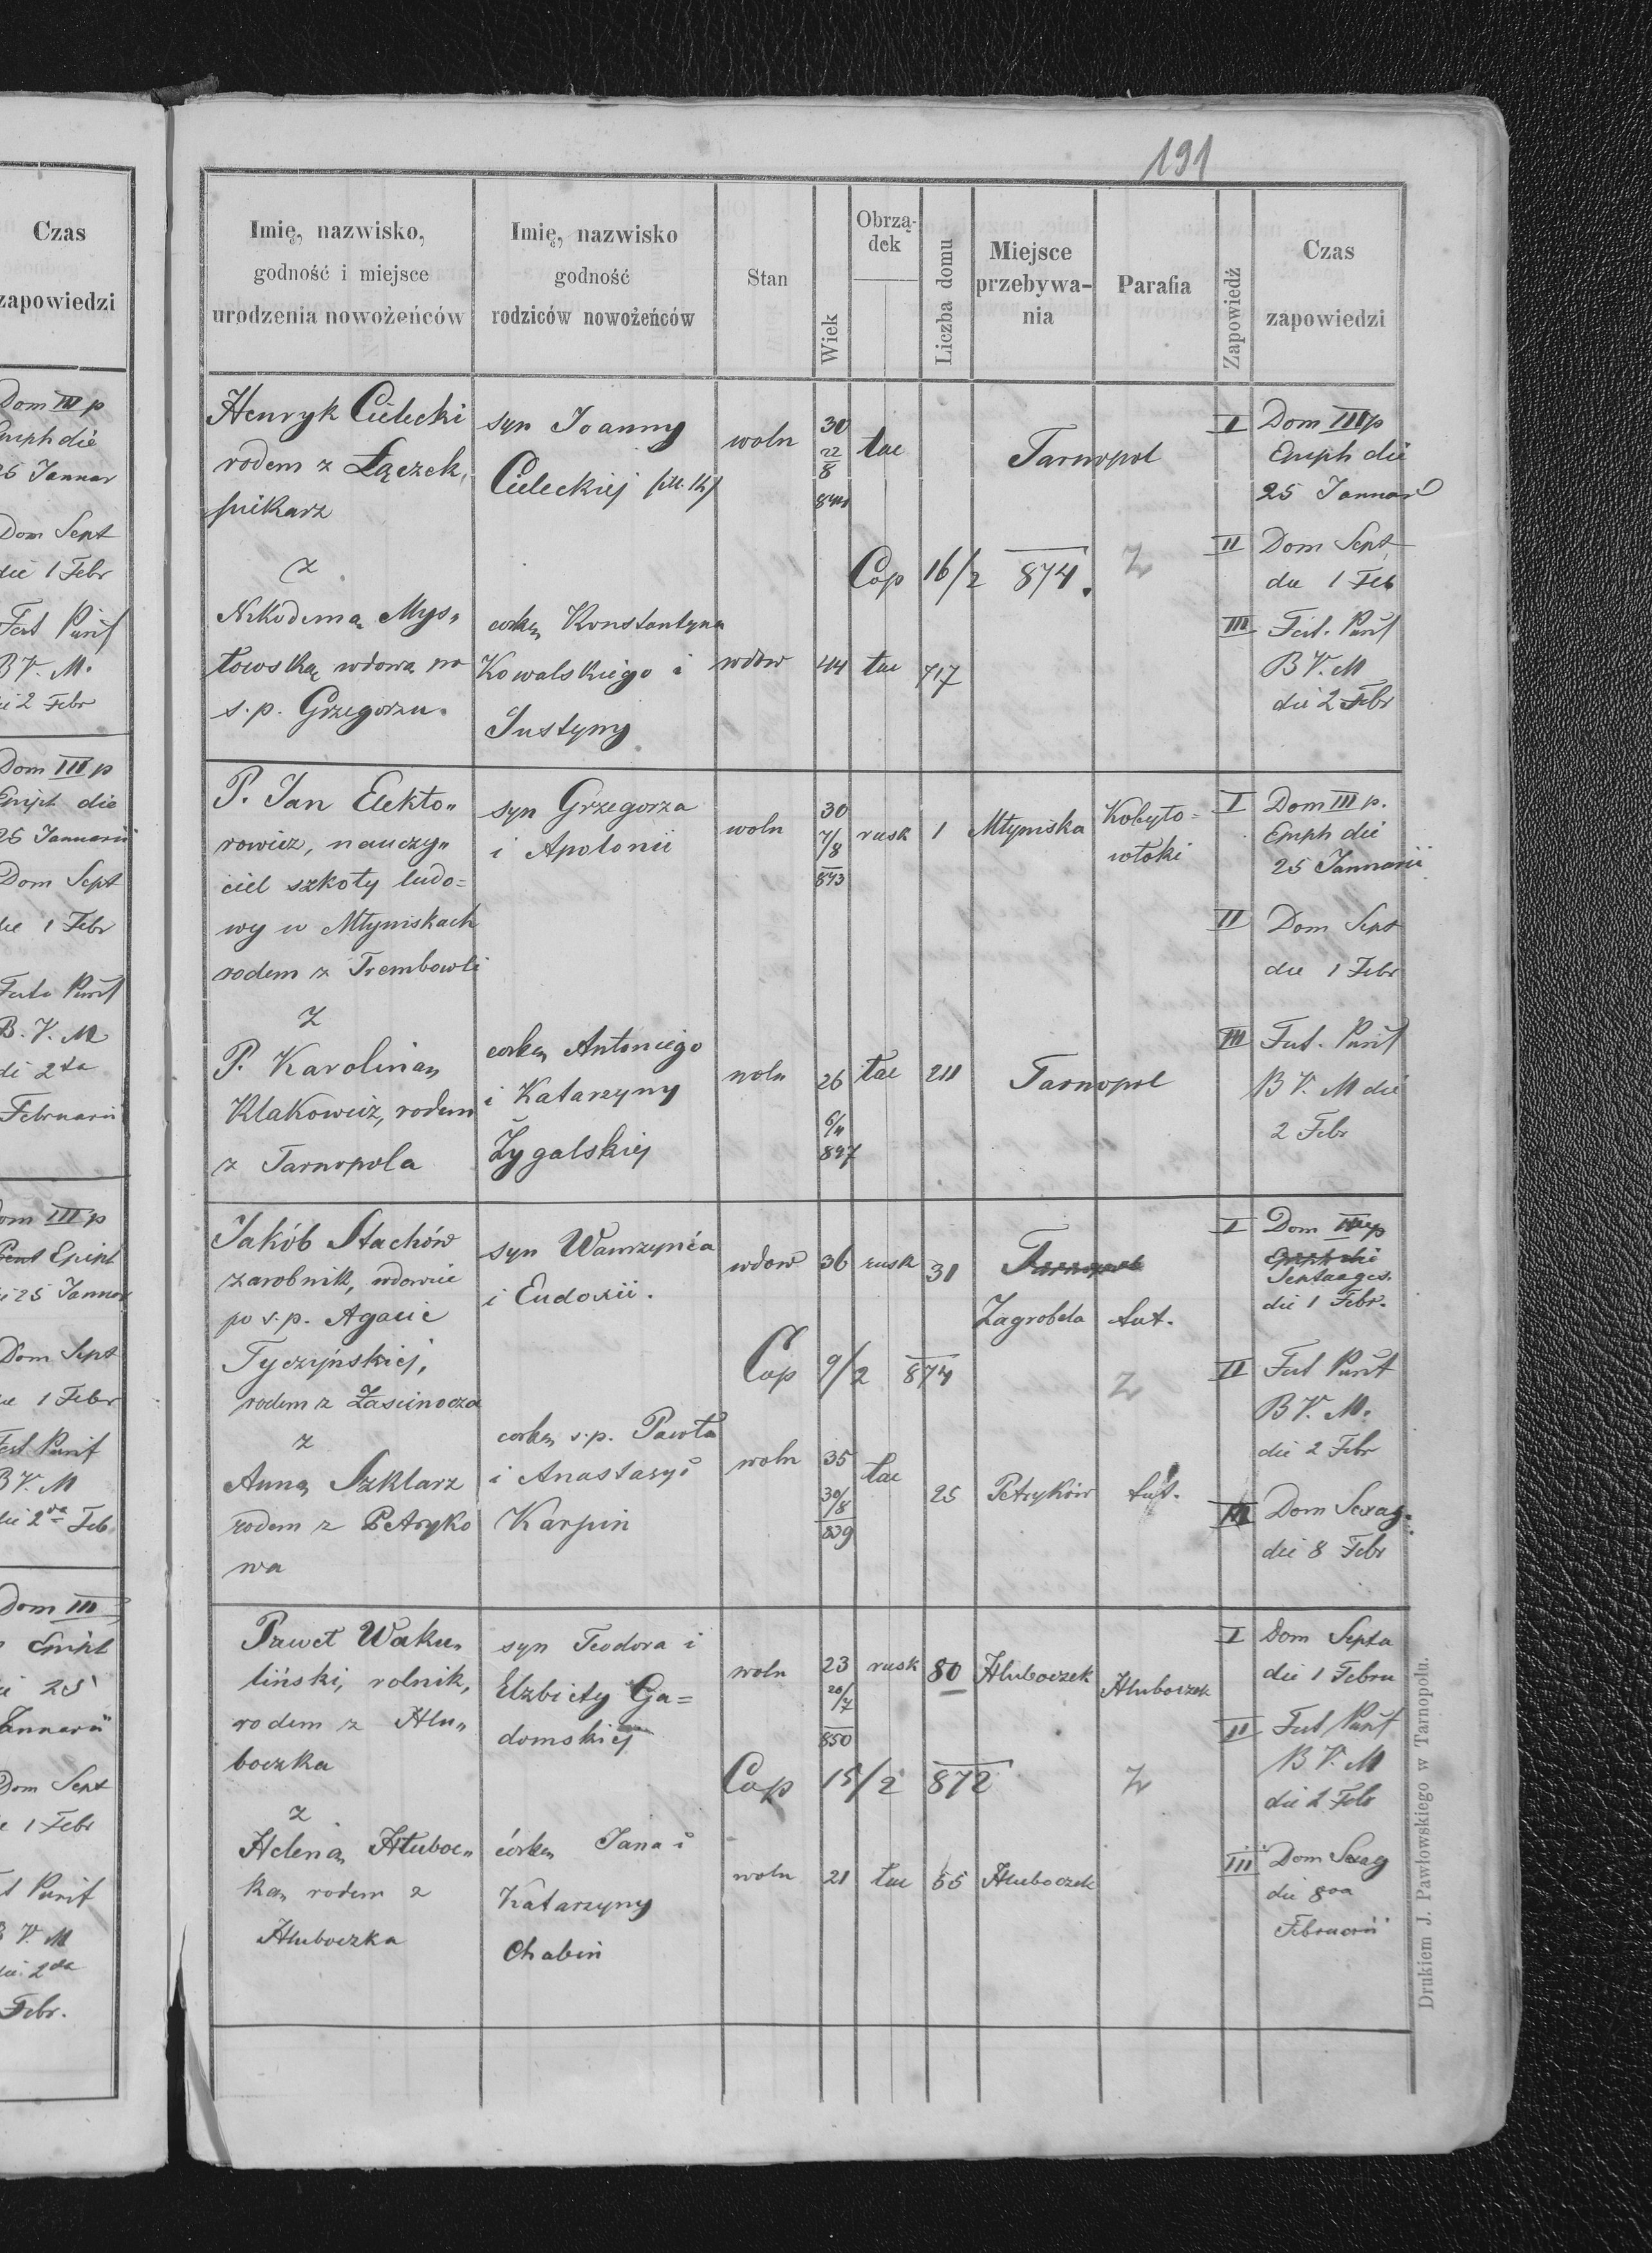 Czas
zapowiedzi
Dom III p
Emph die
25 Januar
Dom Sept
die 1 Febr
Fest Purif
B V. M.
die 2 Febr
Dom III p
Emph die
25 Januarii
Dom Sept
die 1 Febr
Purif
B. V. M
Februarii
Dom III p
Epiph
25 Januar
Dom Sept
1 Febr
Fest Purif
B V. M
die 2da Feb
Dom III
25
Januarii
Dom Sept
1 Febr
Purif
B V. M
die 2da
Febr.
191
Imię, nazwisko,
godność i miejsce
urodzenia nowożeńców
Imię, nazwisko
godność
rodziców nowożeńców
Stan
Wiek
Obrzą-
dek
Liczba domu
Miejsce
przebywa-
nia
Parafia
Zapowiedź
Czas
zapowiedzi
Henryk Cielecki
rodem z Łączek,
piekarz
z
Nikodemą Mys„
łowską wdową po
s. p. Grzegorzu.
syn Joanny
Cieleckiej
córką Konstantyna
Kowalskiego i
Justyny
woln
30
22
8
lac
Tarnopol
Cap 16/2 874.
Z
wdow
44
lac
717
I Dom III p
Emph die
25 Januar
II Dom Sept
die 1 Feb
III Fest. Purif
B V. M
die 2 Febr
P. Jan Elekto„
rowicz, nauczy„
ciel szkoły ludo=
wy w Młyniskach
rodem z Trembowli
z
P. Karoliną
Klakowicz, rodem
z Tarnopola
syn Grzegorza
i Apolonii
córką Antoniego
i Katarzyny
Żygalskiej
woln
30
7/8
843
rusk
1
Młyniska
Kobyło=
włoki
woln
26
6/11
847
lac
211
Tarnopol
I Dom III p.
Emph die
25 Januarii
II Dom Sept
die 1 Febr
III Fest. Purif
B V. M die
2 Febr
Jakób Stachów
zarobnik, wdowiec
po s. p. Agacie
Tyczyńskiej,
rodem z Zaścinocza
z
Anną Szklarz
rodem z Petryko
wa
syn Wawrzyńca
i Eudoxii.
córką s. p. Pawła
i Anastazyi
Karpin
wdow
36
rusk
31
Tarnopol
Zagrobela
tut.
Cap 9/2 874
Z
woln
35
30/8
839
lac
25
Petryków
tut.
I Dom III p
Emph die
Septuages.
die 1 Febr.
II Fest Purif
B V. M.
die 2 Febr
III Dom Sexag.
die 8 Febr
Paweł Waku„
liński, rolnik,
rodem z Hłu„
boczka
z
Heleną Hłuboc„
ką rodem z
Hłuboczka
syn Teodora i
Elzbiety Ga=
domskiej
córką Jana i
Katarzyny
Chabin
woln
23
20/7
850
rusk
80
Hłuboczek
Hłuboczek
Cap 15/2 872
Z
woln
21
lac
55
Hłuboczek
I Dom Septa
die 1 Febru
II Fest Purif
B V. M
die 2 Febr
III Dom Sexag
die 8va
Februarii
Drukiem J. Pawłowskiego w Tarnopolu.